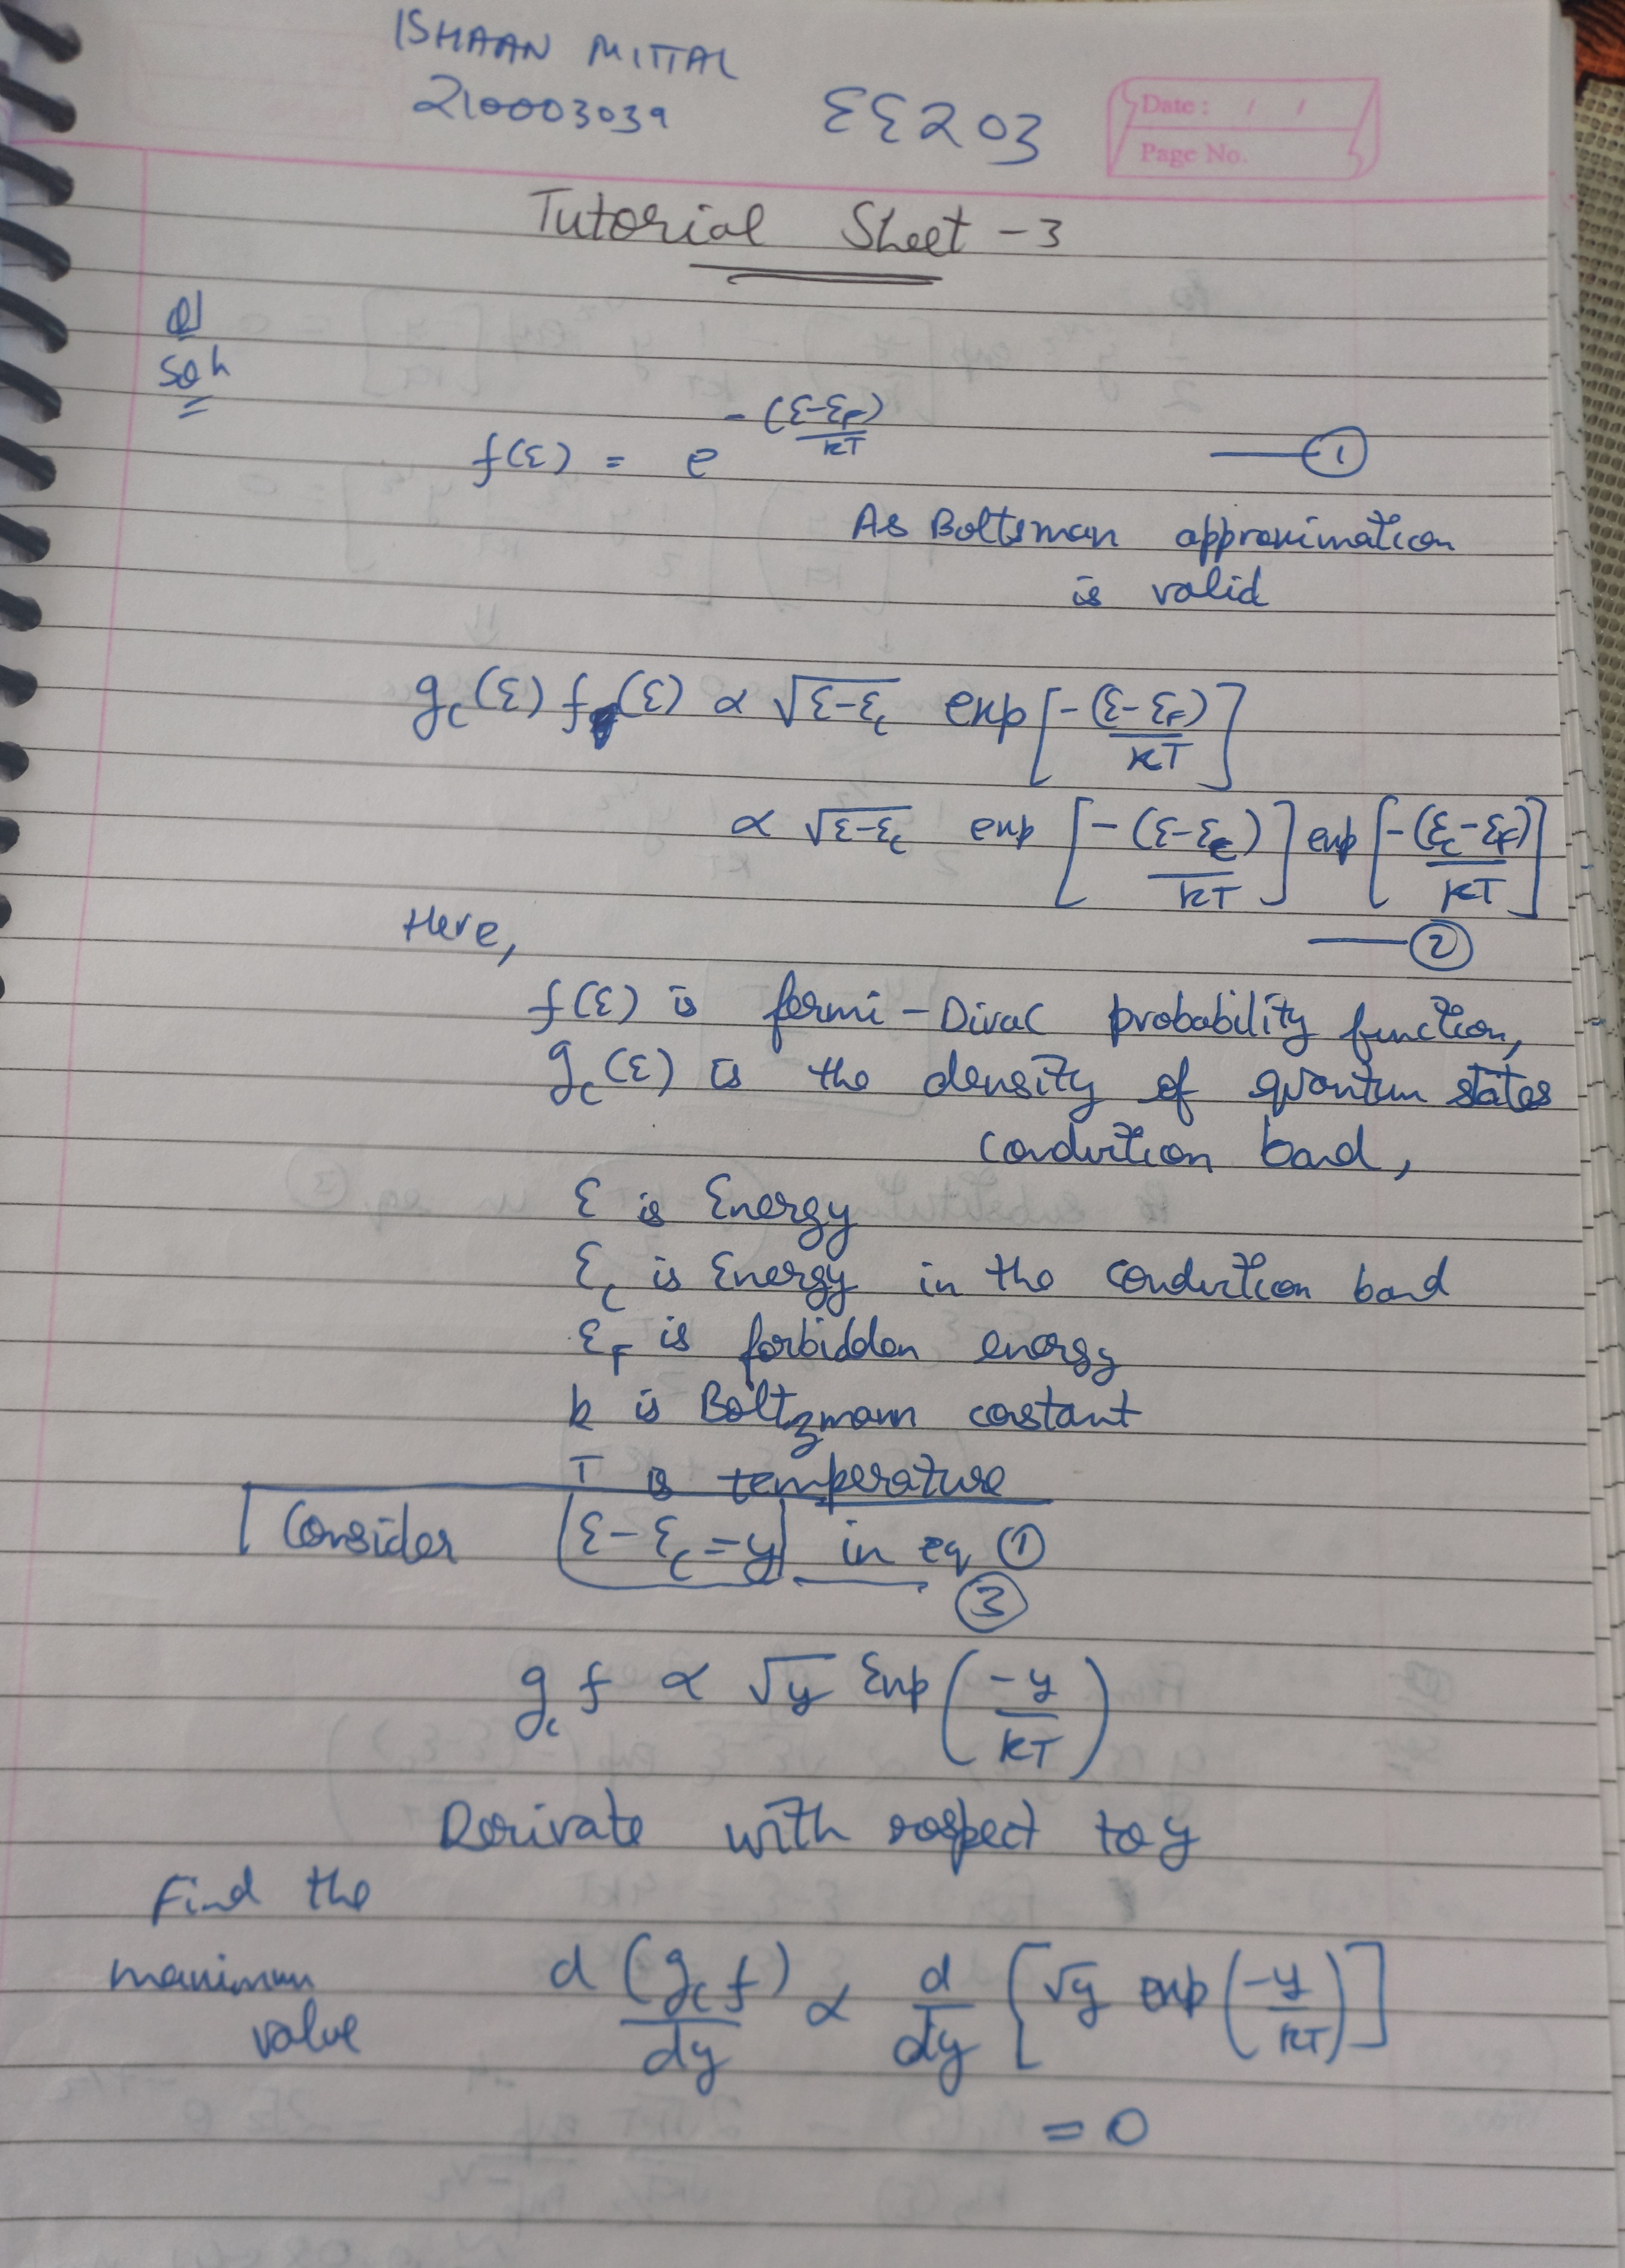 ISHAAN MITTAL
210003039 EE203
Date : / /
Page No.
Tutorial Sheet - 3
Q1
Soln
f(E) = e^(-(E-E_F)/kT) —— ①
As Boltsman approximation
is valid
g_c(E) f(E) ∝ √(E-E_c) exp[-(E-E_F)/kT]
∝ √(E-E_c) exp[-(E-E_c)/kT] exp[-(E_c-E_F)/kT]
—— ②
Here,
f(E) is fermi-Dirac probability function,
g_c(E) is the density of quantum states
conduction band,
E is Energy
E_c is Energy in the conduction band
E_F is forbidden energy
k is Boltzmann constant
T is temperature
Consider E-E_c=y in eq ①
③
g_c f ∝ √y Exp(-y/kT)
Derivate with respect to y
Find the
maximum
value
d(g_c f)/dy ∝ d/dy [√y exp(-y/kT)]
= 0